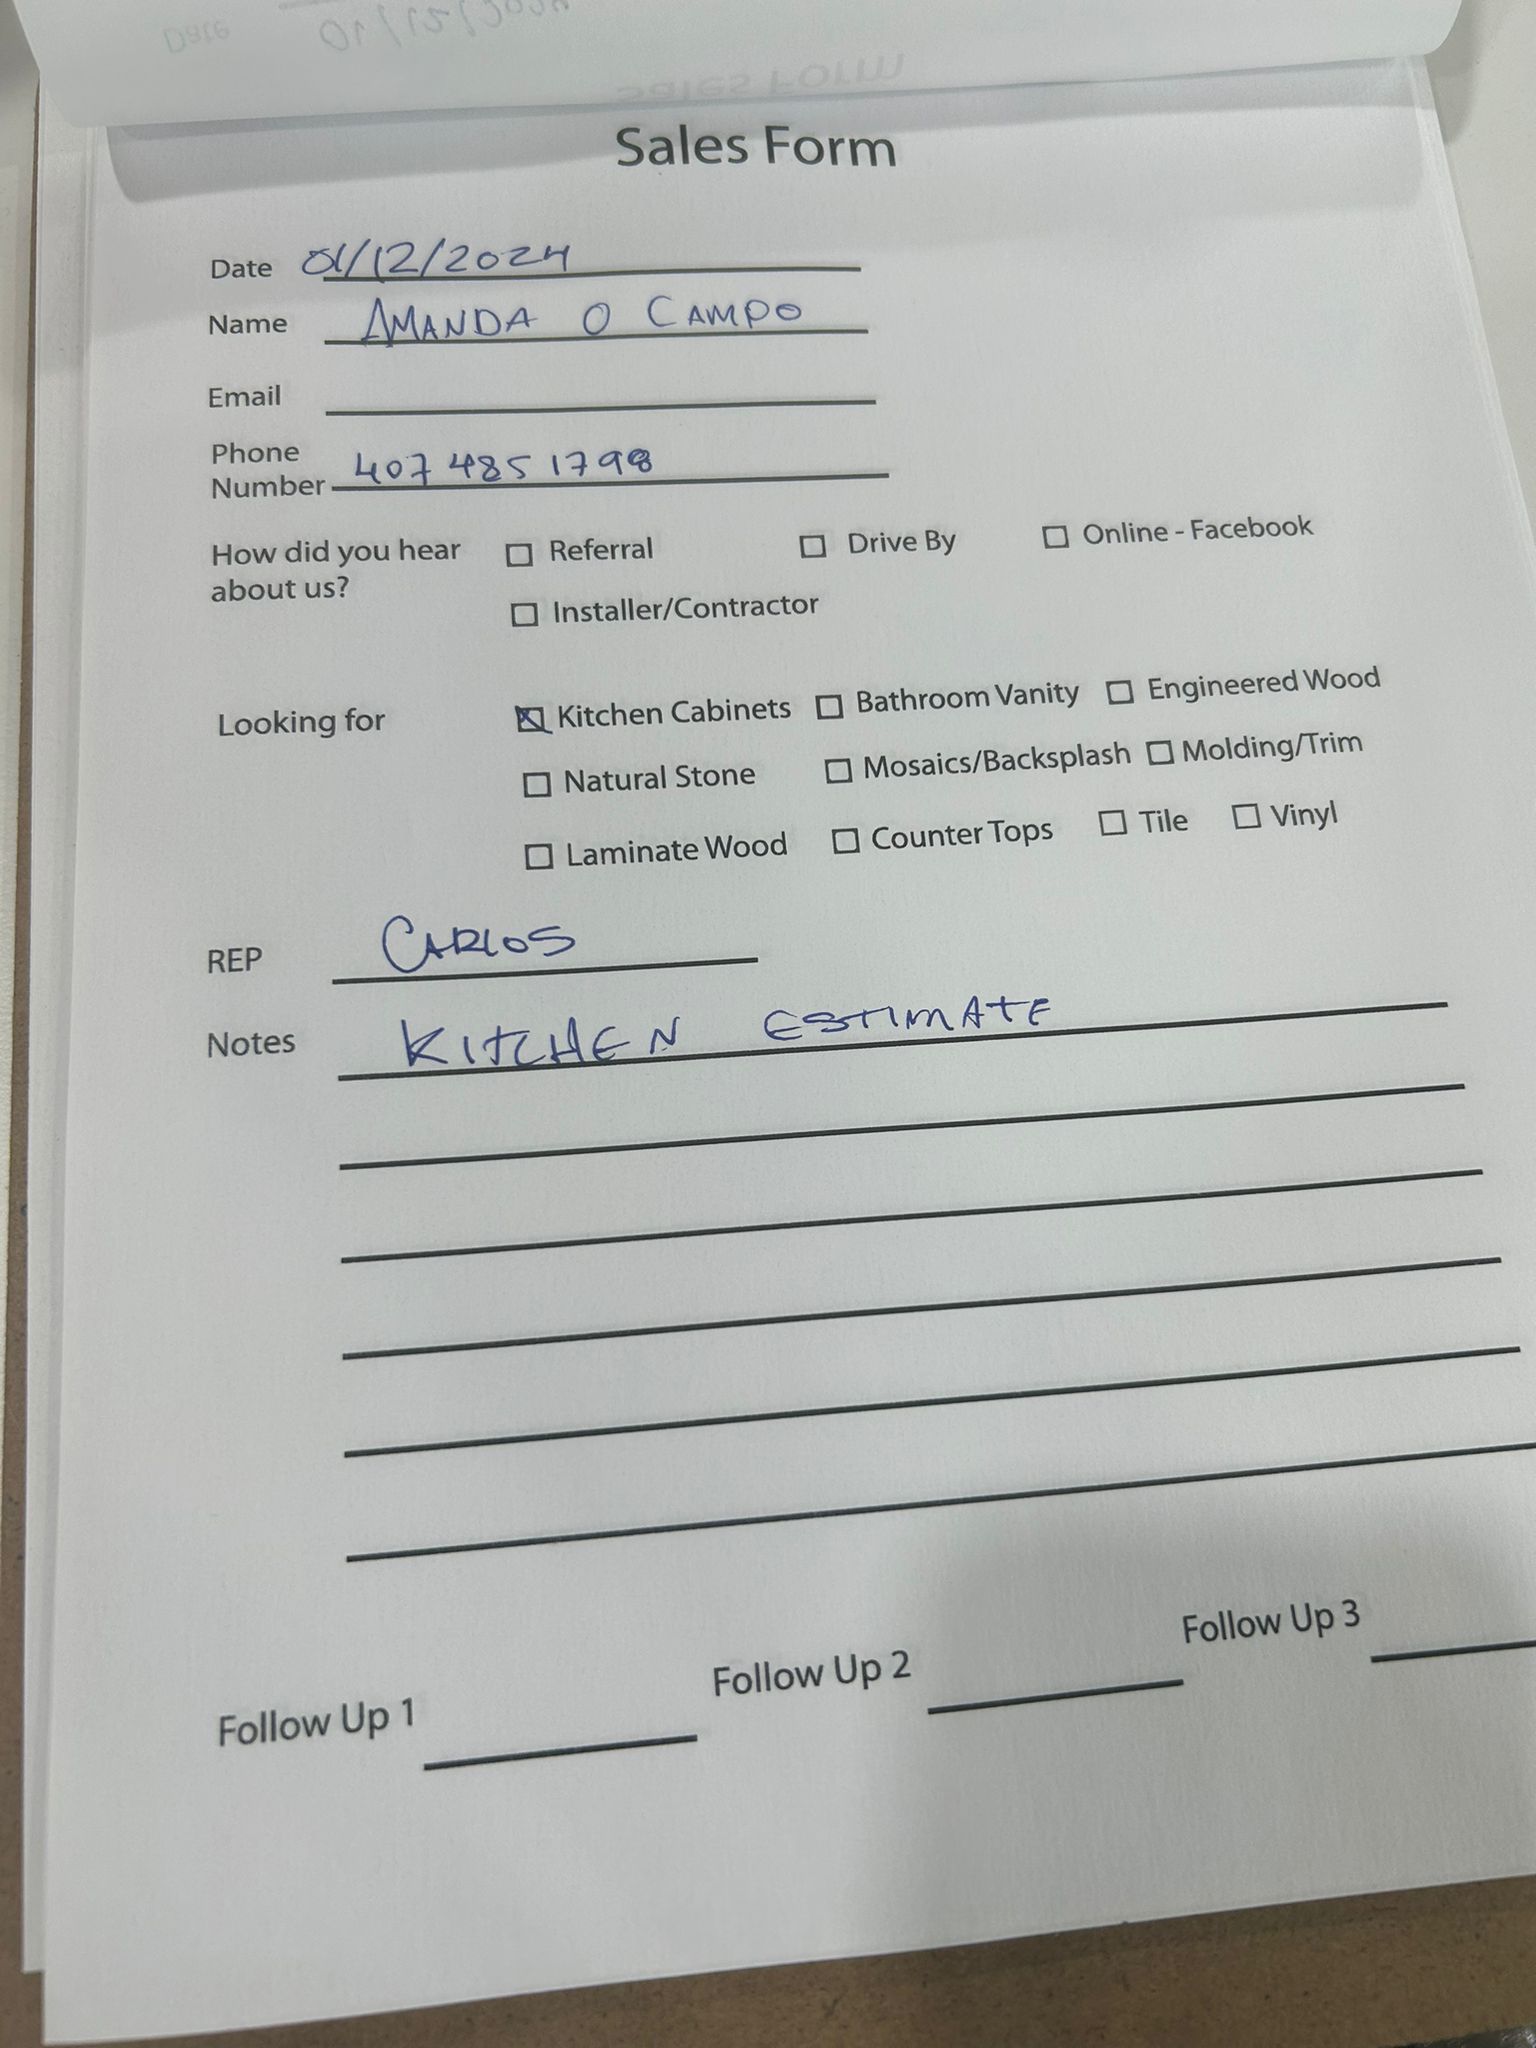 Date 01/12/202
Sales Form
Sales Form
Date 01/12/2024
Name AMANDA O CAMPO
Email
Phone
Number 407 485 1798
How did you hear
about us?
Referral Drive By Online - Facebook
Installer/Contractor
Looking for
Kitchen Cabinets Bathroom Vanity Engineered Wood
Natural Stone Mosaics/Backsplash Molding/Trim
Laminate Wood Counter Tops Tile Vinyl
REP CARLOS
Notes KITCHEN ESTIMATE
Follow Up 1 Follow Up 2 Follow Up 3